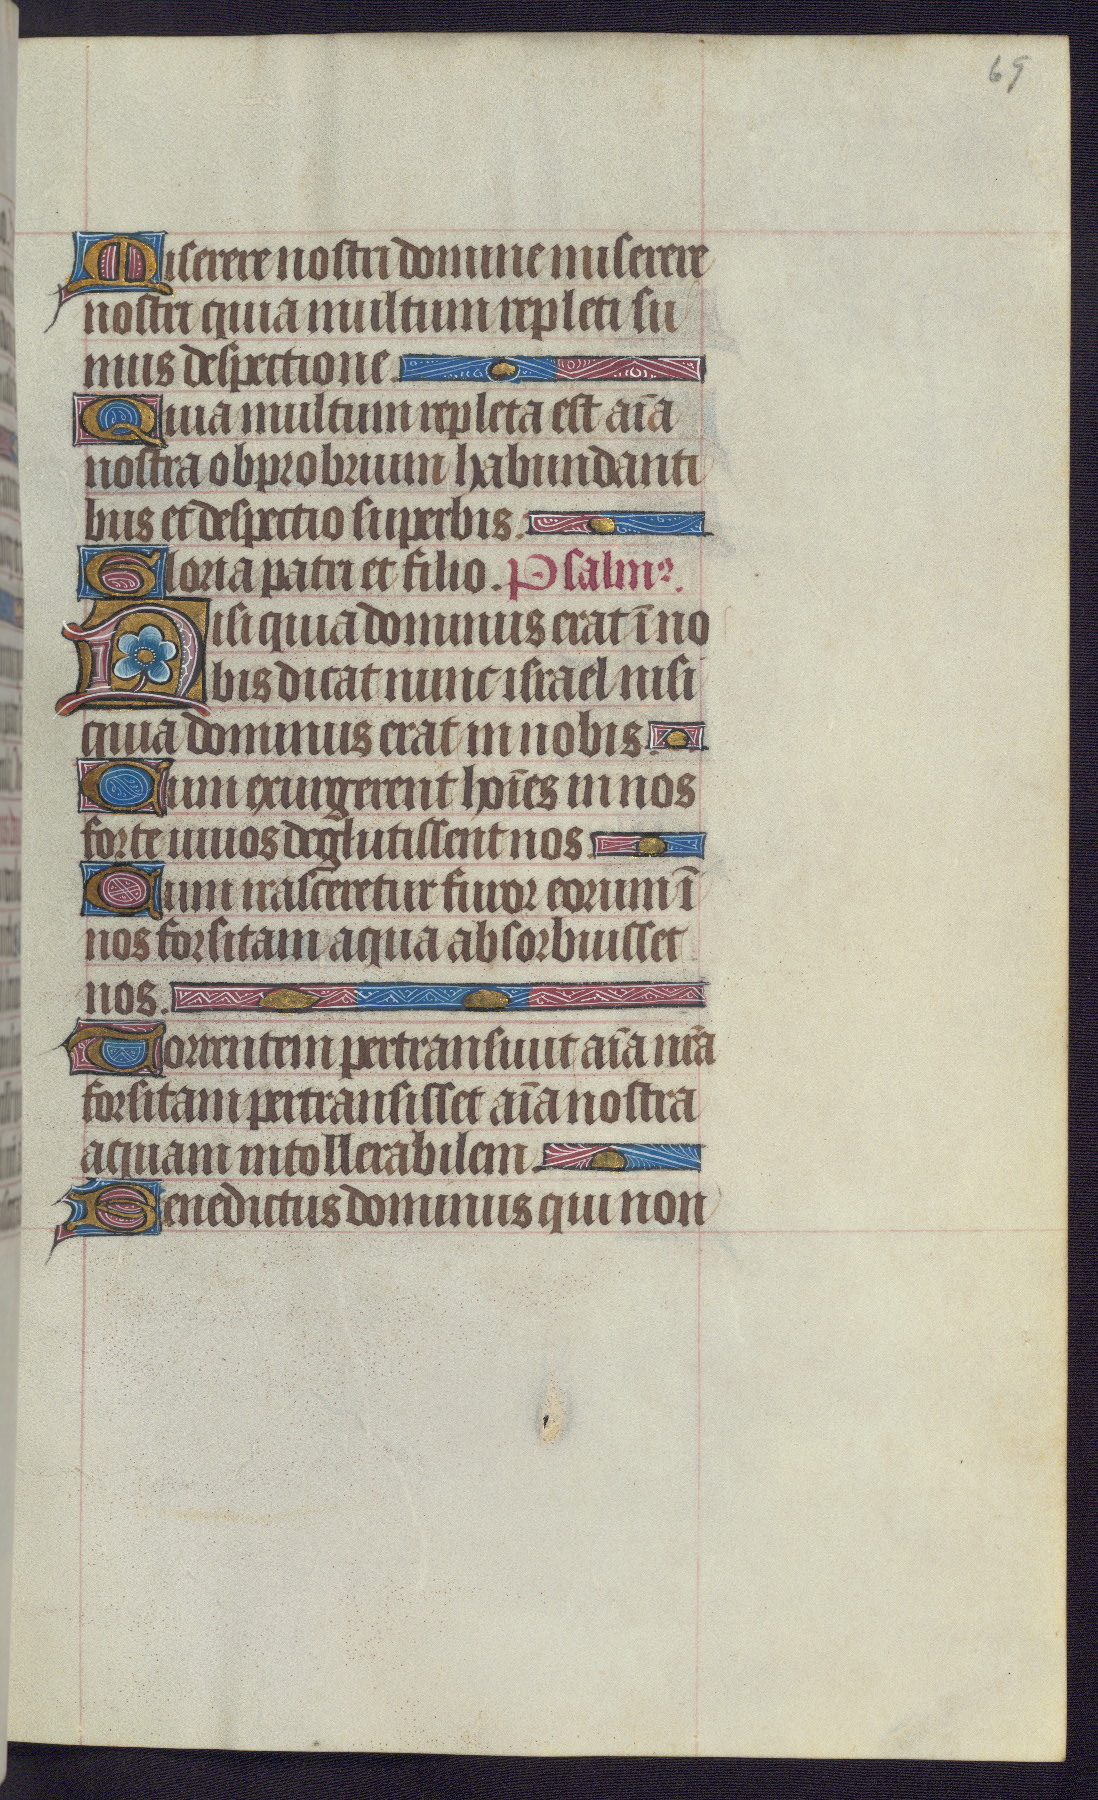 69
Miserere nostri domine miserere
nostri quia multum repleti su
mus despectione.
Quia multum repleta est aīa
nostra obprobrium habundanti
bus et despectio superbis.
Gloria patri et filio. Psalmꝰ.
Nisi quia dominus erat ī no
bis dicat nunc israel nisi
quia dominus erat in nobis.
Cum exurgerent hoīes in nos
forte uiuos deglutissent nos
Cum irasceretur furor eorum ī
nos forsitam aqua absorbuisset
nos.
Torrentem pertransiuit aīa nr̄a
forsitam pertransisset aīa nostra
aquam intollerabilem.
Benedictus dominus qui non